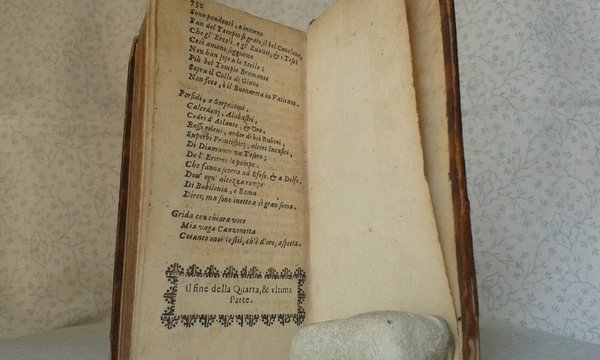 732
Sono pendenti, e interno
Fan del Tempio sì grato, il bel Contorno
Che gl' Ercoli, e gl'
Così amano soggiorno
Non han sopra le Stelle;
Più bel Tempio Bramante
Sopra il Colle di Giano
Non fece, ò il Buonarota in Vaticano.
Porfidi, e Serpentini,
Calcedonj, Alabastri,
Cedri d' Atlante, & Oro,
Bassi rilevi, ardor di bei Rubini,
Superbi Frontispicj, altri Incastri,
Di Diamante un Tesoro;
De l' Eritreo le pompe,
Che fanno scorno ad Efeso, & a Delfo,
Dou' ogn' altezza rompe
Di Babilonia, e Roma
Direi; ma sono inetto a sì gran soma,
Grida con chiara voce
Mia vaga Canzonetta
Cotanto onor lo stil, ch'è d'oro, aspetta,
Il fine della Quarta, & vltima
Parte.